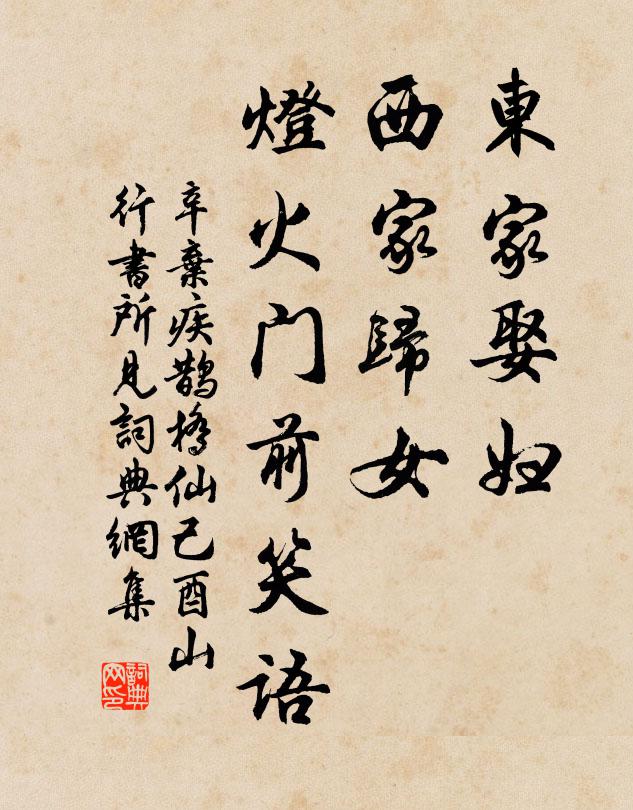 東家娶妇
西家歸女
燈火门前笑語
辛棄疾鹊橋仙己酉山
行書所見詞典網集
詞典网印